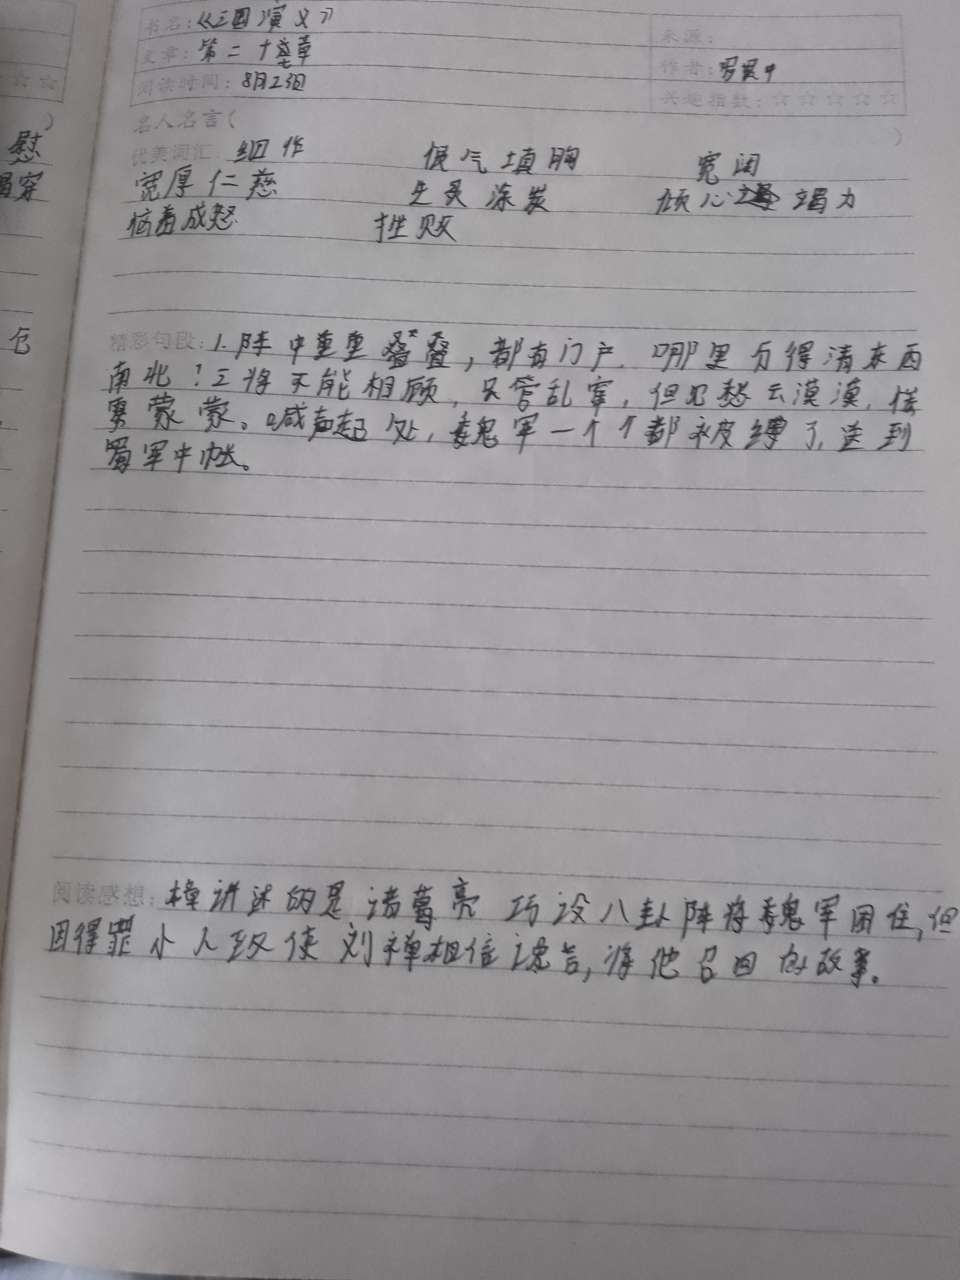 书名:《三国演义》
来源:
文章:第二十七章
作者:罗贯中
阅读时间:8月2日
兴趣指数:☆☆☆☆☆
名人名言( )
优美词汇:细作 恨气填胸 宽阔
宽厚仁慈 生灵涂炭 倾心竭力
恼羞成怒 挫败
精彩句段:1.阵中重重叠叠,都有门户,哪里分得清东西
南北!三将不能相顾,只管乱窜,但见愁云漠漠,惨
雾蒙蒙。喊声起处,魏军一个个都被缚了,送到
蜀军中帐。
阅读感想:本章讲述的是诸葛亮巧设八卦阵将魏军困住,但
因得罪小人致使刘禅相信谗言,将他召回的故事。
慰
穿
☆☆